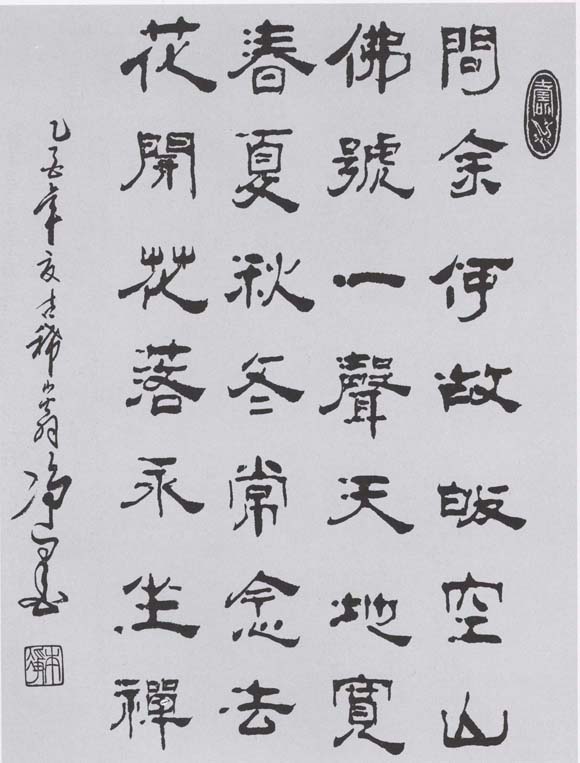 問余何故皈空山
佛號一聲天地寬
春夏秋冬常念法
花開花落永坐禪
乙亥年夏古稀翁淨書